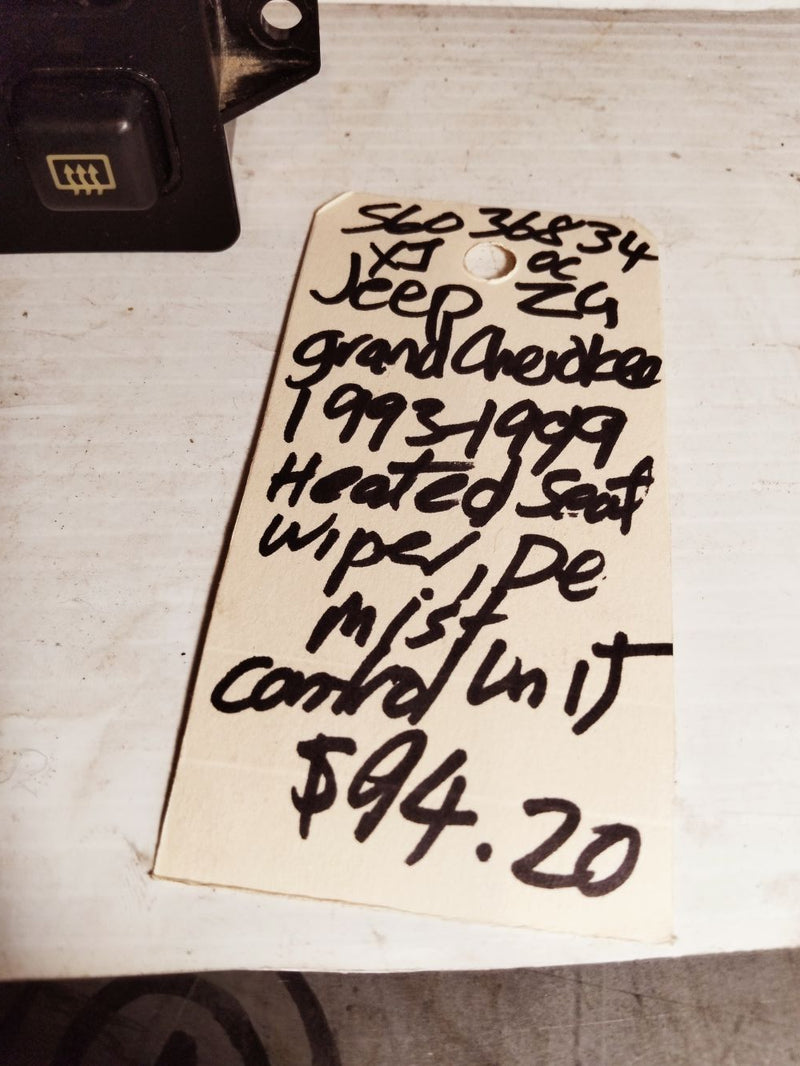 56036834
XJ oc
Jeep ZG
grand Cherokee
1993-1999
Heated Seat
wiper, De
mist
control Unit
$94.20